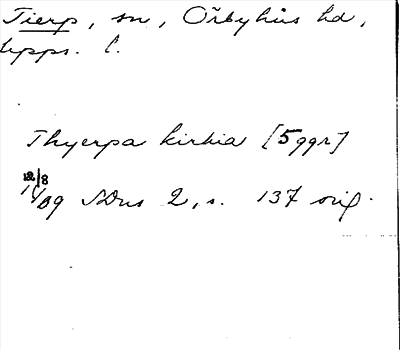 Tierp, sn, Örbyhus hd,
Upps. l.
Thyerpa kirkia [5 ggr]
12/8
1409 SDns 2, s. 137 orig.